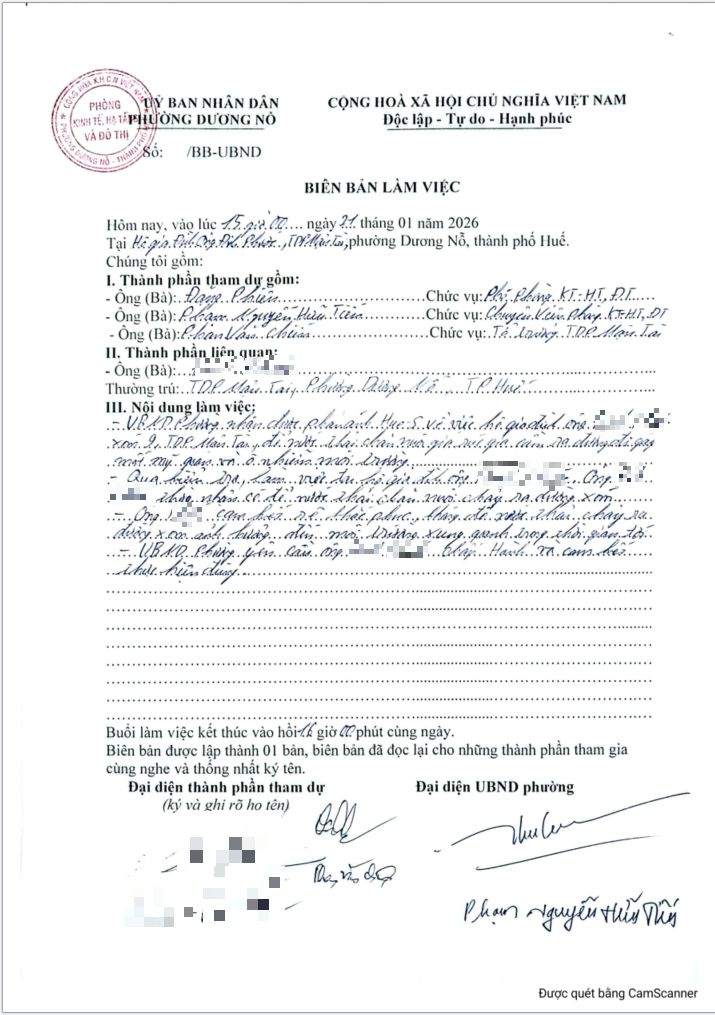 CỘNG HOÀ X.H.C.N VIỆT NAM
PHÒNG
KINH TẾ, HẠ TẦNG
VÀ ĐÔ THỊ
UỶ BAN NHÂN DÂN
PHƯỜNG DƯƠNG NỖ
Số: /BB-UBND
CỘNG HOÀ XÃ HỘI CHỦ NGHĨA VIỆT NAM
Độc lập - Tự do - Hạnh phúc
BIÊN BẢN LÀM VIỆC
Hôm nay, vào lúc 15 giờ 00 ngày 21 tháng 01 năm 2026
Tại Hộ gia đình Ông Đình Phước, TDP Mậu Tài, phường Dương Nỗ, thành phố Huế.
Chúng tôi gồm:
I. Thành phần tham dự gồm:
- Ông (Bà): Đặng Phiên Chức vụ: Phó Phòng KT-HT, ĐT
- Ông (Bà): Phạm Nguyễn Hữu Tiến Chức vụ: Chuyên Viên Phòng KT-HT, ĐT
- Ông (Bà): Phan Văn Chiến Chức vụ: Tổ trưởng TDP Mậu Tài
II. Thành phần liên quan:
- Ông (Bà):
Thường trú: TDP Mậu Tài, Phường Dương Nỗ TP Huế
III. Nội dung làm việc:
- UBND Phường nhận được phản ánh Hue-S về việc hộ gia đình ông
xóm 9, TDP Mậu Tài, để nước thải chăn nuôi gia súc gia cầm ra đường đi gây
mất mỹ quan và ô nhiễm môi trường
- Qua kiểm tra, làm việc tại hộ gia đình ông Ông
thừa nhận có để nước thải chăn nuôi chảy ra đường xóm
- Ông cam kết sẽ khắc phục, không để nước thải chảy ra
đường xóm ảnh hưởng đến môi trường xung quanh trong thời gian tới
- UBND Phường yêu cầu ông chấp Hành và cam kết
thực hiện đúng
Buổi làm việc kết thúc vào hồi 16 giờ 00 phút cùng ngày.
Biên bản được lập thành 01 bản, biên bản đã đọc lại cho những thành phần tham gia
cùng nghe và thống nhất ký tên.
Đại diện thành phần tham dự
(ký và ghi rõ họ tên)
Đại diện UBND phường
Phạm Nguyễn Hữu Tiến
Được quét bằng CamScanner